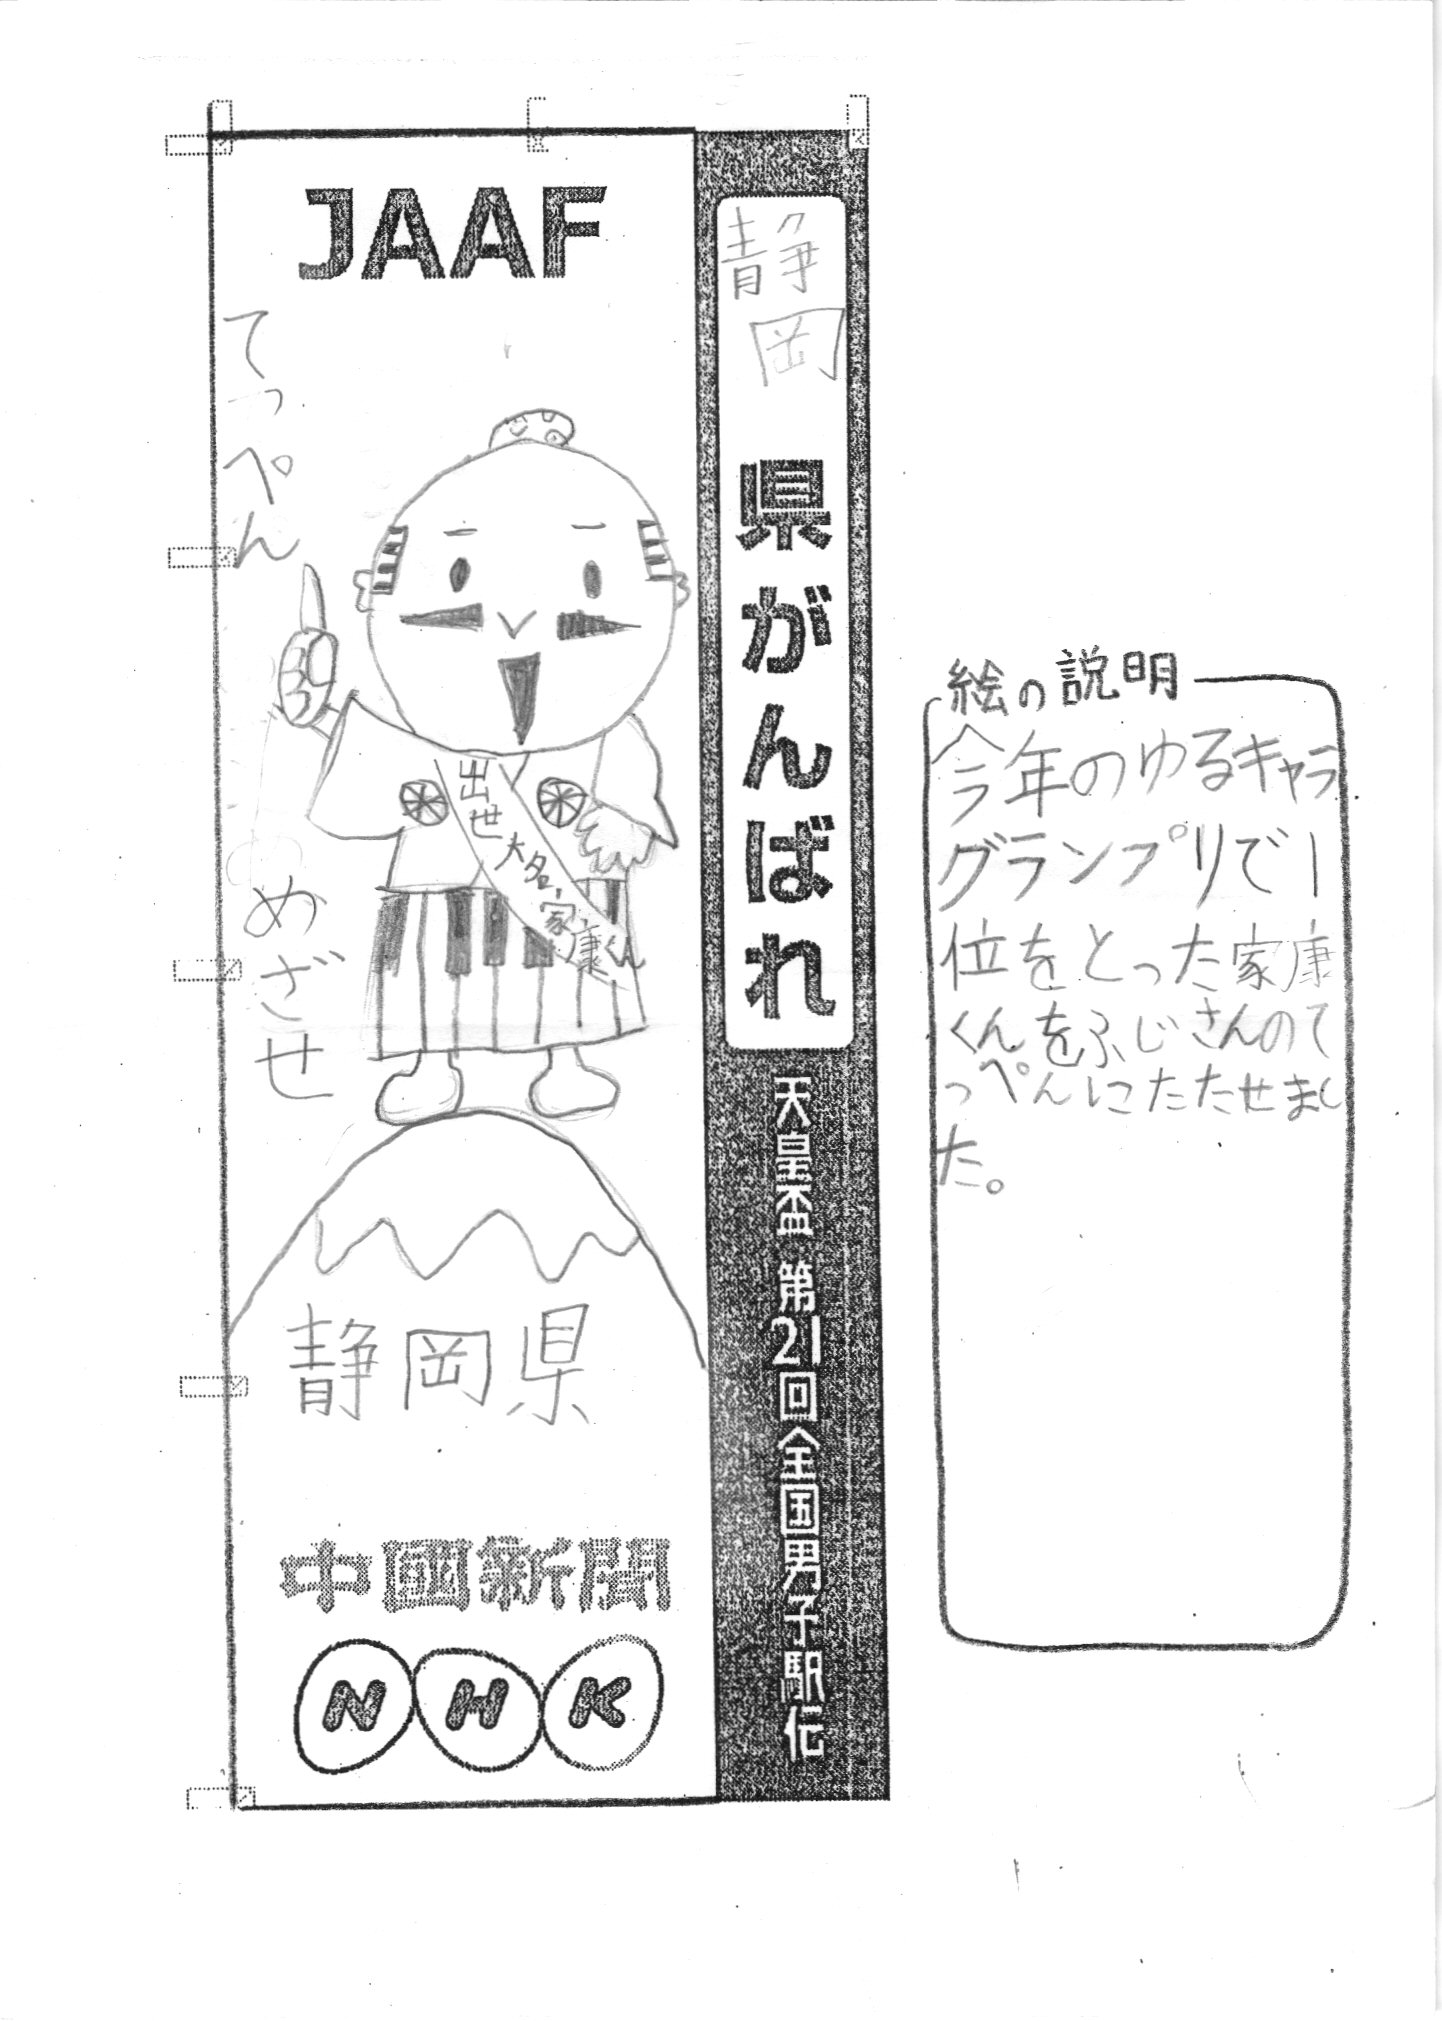 JAAF
てっぺん
めざせ
出世大名家康くん
静岡県
中國新聞
NHK
静岡県がんばれ
天皇盃 第21回全国男子駅伝
絵の説明
今年のゆるキャラ
グランプリで1
位をとった家康
くんをふじさんのて
っぺんにたたせまし
た。